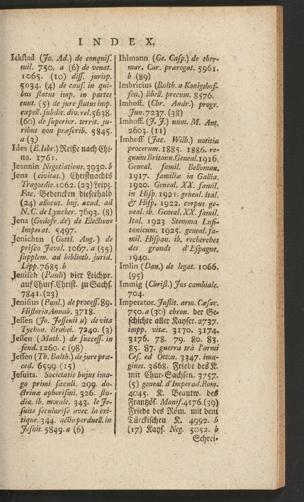 INDEX.
Ickstad (Jo. Ad.) de conquis.
nuil. 750. a (6) de venat.
1065. (10) diss. jurisp.
5034. (4) de cauf. in qui-
bus status imp. in partes
eunt. (5) de jure status imp.
expell. subdit. div. rel. 5638.
(60) de superior. territ. ju-
ribus non præscrib. 5845.
a (3)
Ides (E. Isbr.) Reise nach Chi-
na. 1761.
Jeannin Negotiations. 3930. b
Jena (civitas.) Christnachts
Tragoedie. 1062. (23) Leipz.
Fac. Bedencken dieserhalb
(24) allocut. buj. acad. ad
N. C. de Lyncker. 7693. (8)
Jena (Godofr. de) de Electinor
Imperat. 5497.
Jenichen (Gottl. Aug.) de
prisco Javol. 1067. a (55)
supplem. ad biblioth. jurid.
Lipp. 7685. b
Jenisch (Pauli) vier Leichpr.
auf Churf. Christ. zu Sachs.
7841. (23)
Jenisius (Paul.) de process. 89.
Historia Annab. 3718.
Jessen (Jo. Jessenii a) de vita
Tychon. Brahei. 7240. (3)
Jessen (Matth.) de success. in
feud. 1260. c (98)
Jessen (Th. Balth.) de jure præ-
ced. 6599. (15)
Jesuita. Societatis hujus ima-
go primi sæculi. 299. do-
ctrina aphorismi. 326. stu-
dia, ib. morale. 343. le Je-
suite secularisé avec la cri-
tique. 344. actio perduell. in
Jesuit. 5849. a (6)
Ihlmann (Ge. Casp.) de ther-
mar. Car. prærogat. 5961.
b (89)
Imbricius (Balth. a Konigshof-
fen,) libell. precum. 8576.
Imhoff. (Chr. Andr.) progr.
Jun. 7237. (38)
Imhoff. (J. J.) num. M. Ant.
2603. (11)
Imhoff (Jac. Wilh.) notitia
procerum. 1885. 1886. re-
gnum Britann. Geneal. 1916.
Geneal. famil. Bellomau.
1917. familiæ in Gallia.
1920. Geneal. XX. famil.
in Hisp. 1921. geneal. Ital.
& Hisp. 1922. corpus ge-
neal. ib. Geneal. XX. famil.
Ital. 1923 Stemma Lusi-
tanicum. 1925. geneal. fa-
mil. Hispan. ib. recherches
des grands d'Espagne.
1940.
Imlin (Dan.) de legat. 1066.
(95)
Immig (Christ.) Jus cambiale.
704.
Imperator. Justit. arm. Cæsar.
750. a (30) ehren. der Ge-
schichte aller Kayser. 2737.
impp. vitæ. 3170. 3174.
3176. 78. 79. 80. 83.
85. 87. guerra trà Parmi
Ces. ed Ottom. 3347. ima-
gines. 3668. Friede des K.
mit Chur-Sachsen. 3757.
(5) geneal. d'Imperad. Rom.
4045. K. Beantw. des
Französ. Manif. 4176. (39)
Friede des Röm. mit dem
Türckischen K. 4992. b
(17) Kays. Neg. 5052. b
Schrei-